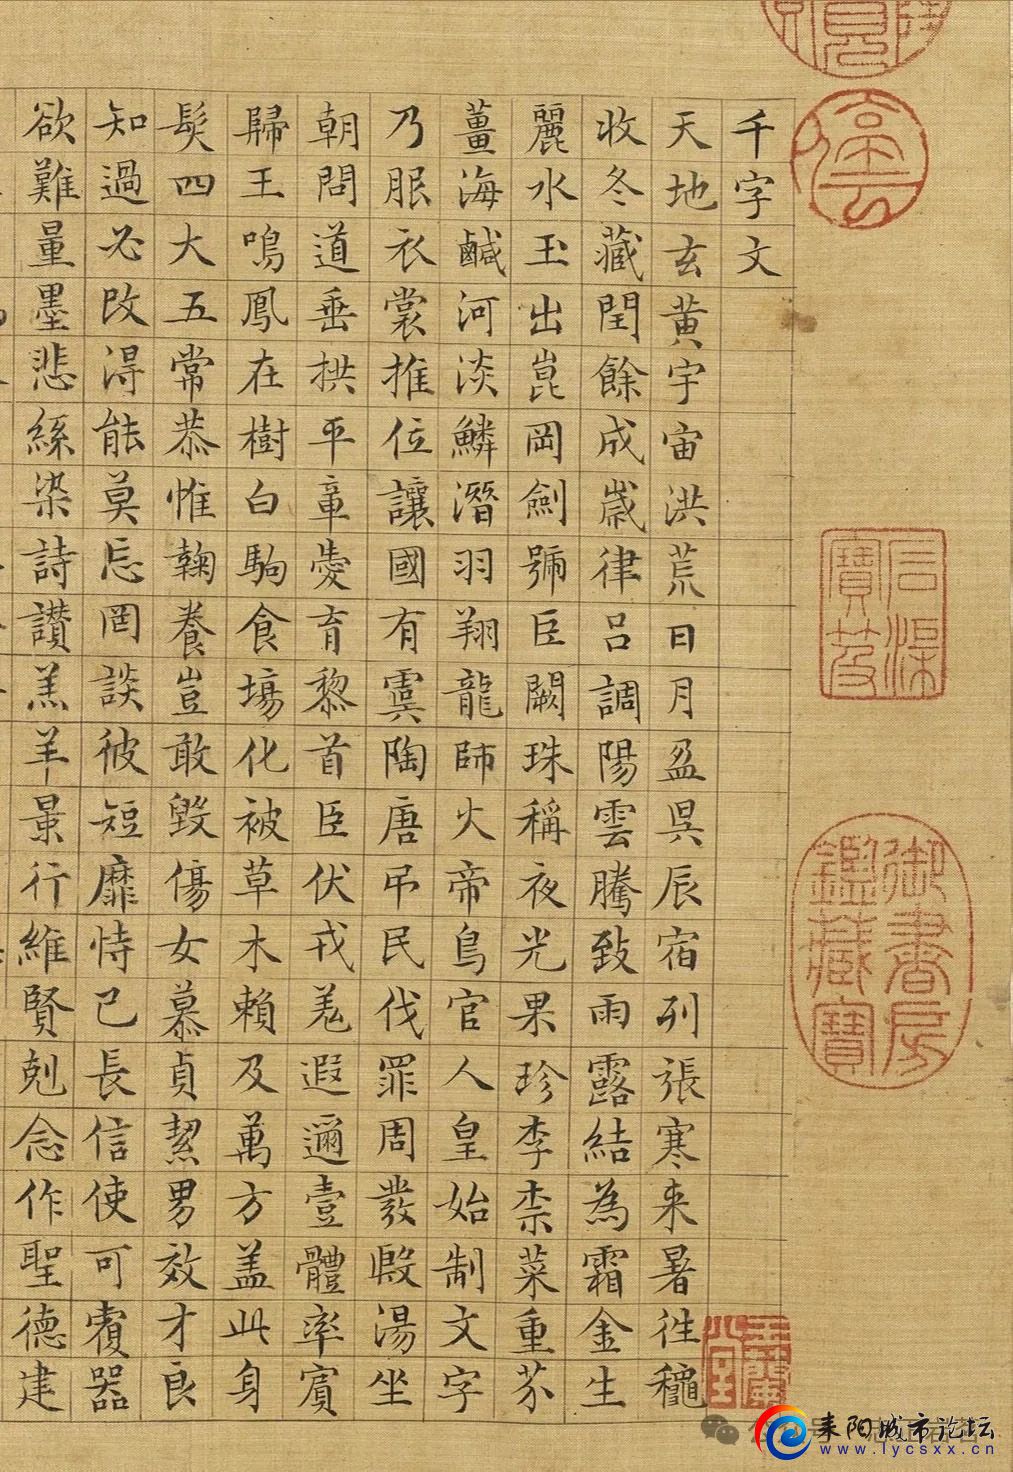 千字文
天地玄黄宇宙洪荒日月盈昃辰宿列張寒来暑徃穐
收冬藏閏餘成歲律吕調陽雲騰致雨露結為霜金生
麗水玉出崑岡劍號巨闕珠稱夜光果珍李柰菜重芥
薑海鹹河淡鱗潛羽翔龍師火帝鳥官人皇始制文字
乃服衣裳推位讓國有虞陶唐吊民伐罪周發殷湯坐
朝問道垂拱平章愛育黎首臣伏戎羌遐邇壹體率賓
歸王鳴鳳在樹白駒食場化被草木賴及萬方盖此身
髮四大五常恭惟鞠養豈敢毀傷女慕貞絜男效才良
知過必改得能莫忘罔談彼短靡恃己長信使可覆器
欲難量墨悲絲染詩讃羔羊景行維賢剋念作聖德建
石渠
寶笈
御書房
鑑藏寶
耒阳城市论坛
www.lycsxx.cn